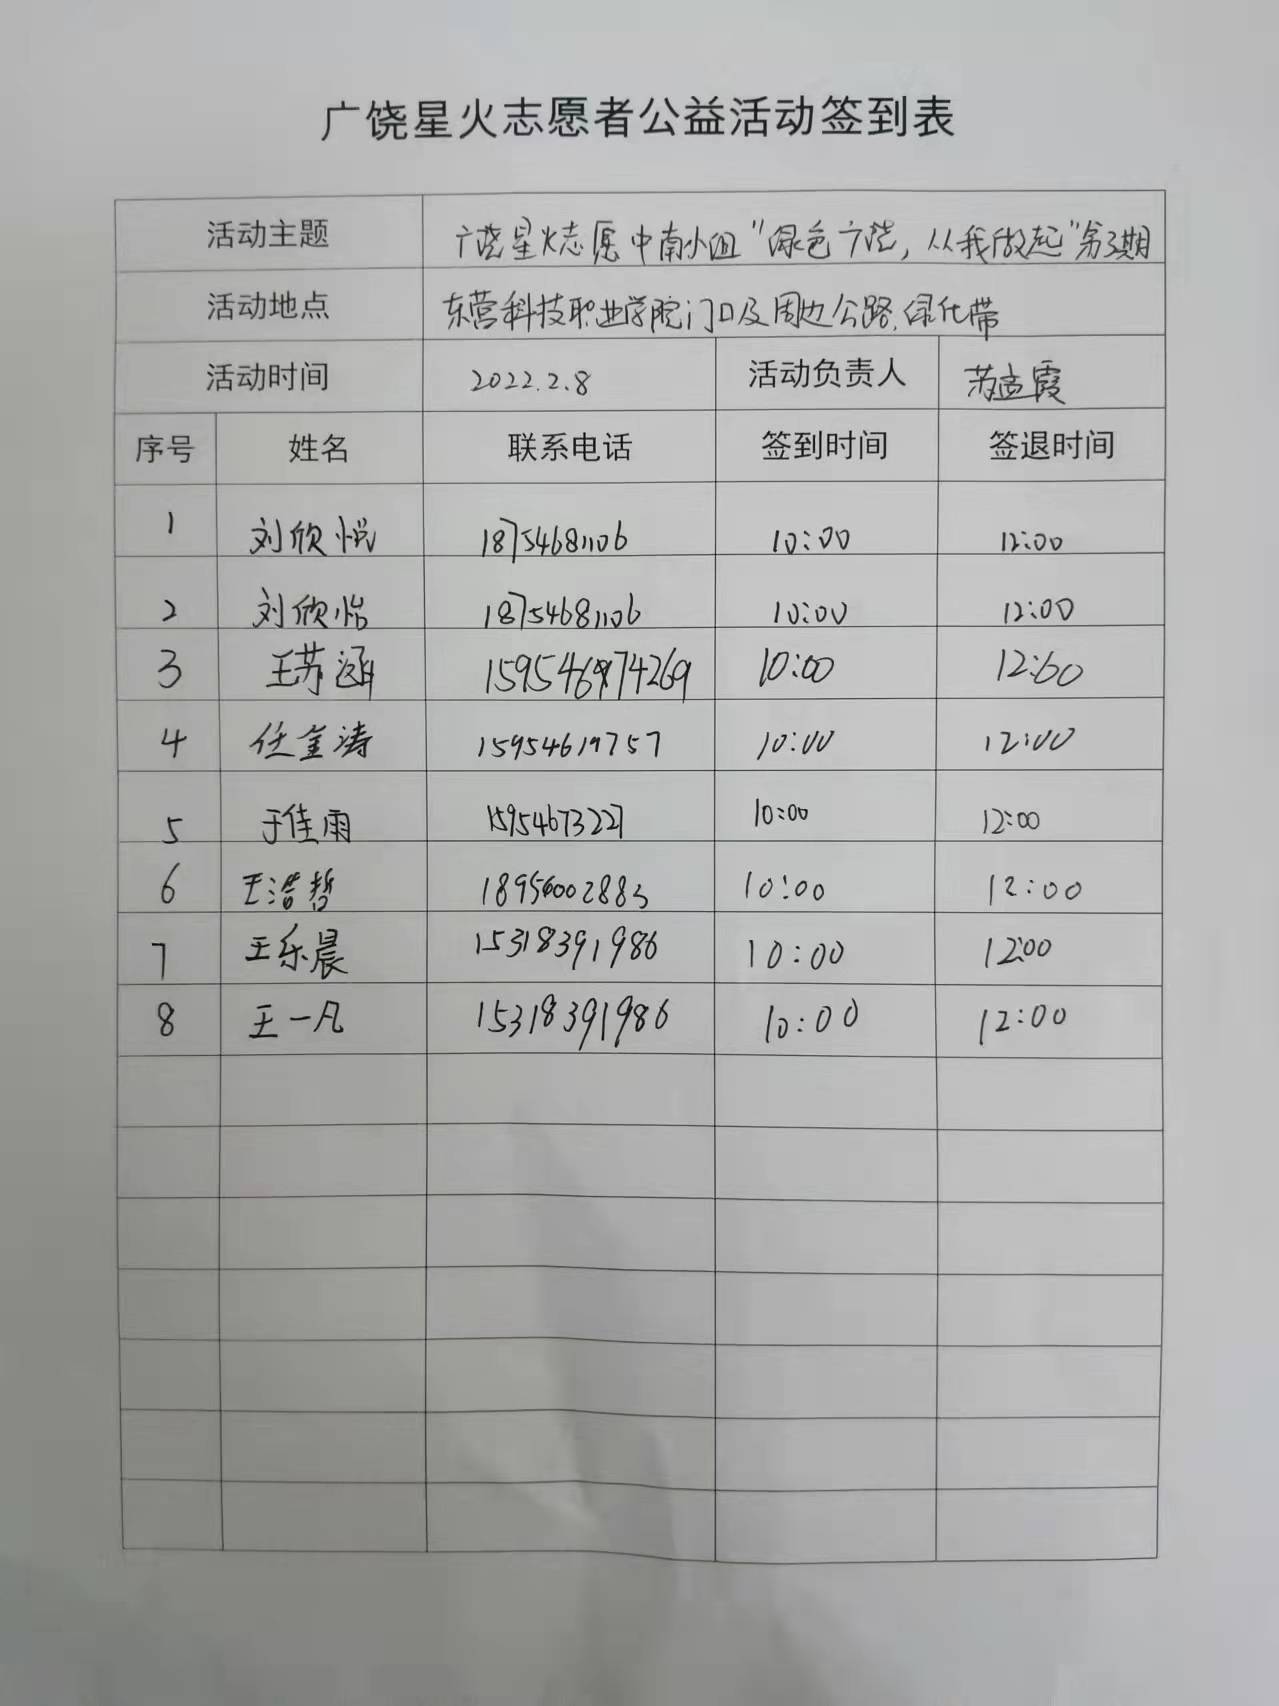 广饶星火志愿者公益活动签到表
活动主题 广饶星火志愿中南小组"绿色广饶,从我做起"第3期
活动地点 东营科技职业学院门口及周边公路.绿化带
活动时间 2022.2.8 活动负责人 苏孟霞
序号 姓名 联系电话 签到时间 签退时间
1 刘欣悦 18754681106 10:00 12:00
2 刘欣怡 18754681106 10:00 12:00
3 王苏涵 10:00 12:00
4 任金涛 15954619757 10:00 12:00
5 于佳雨 15954673227 10:00 12:00
6 王浩哲 18956002883 10:00 12:00
7 王乐晨 15318391986 10:00 12:00
8 王一凡 15318391986 10:00 12:00